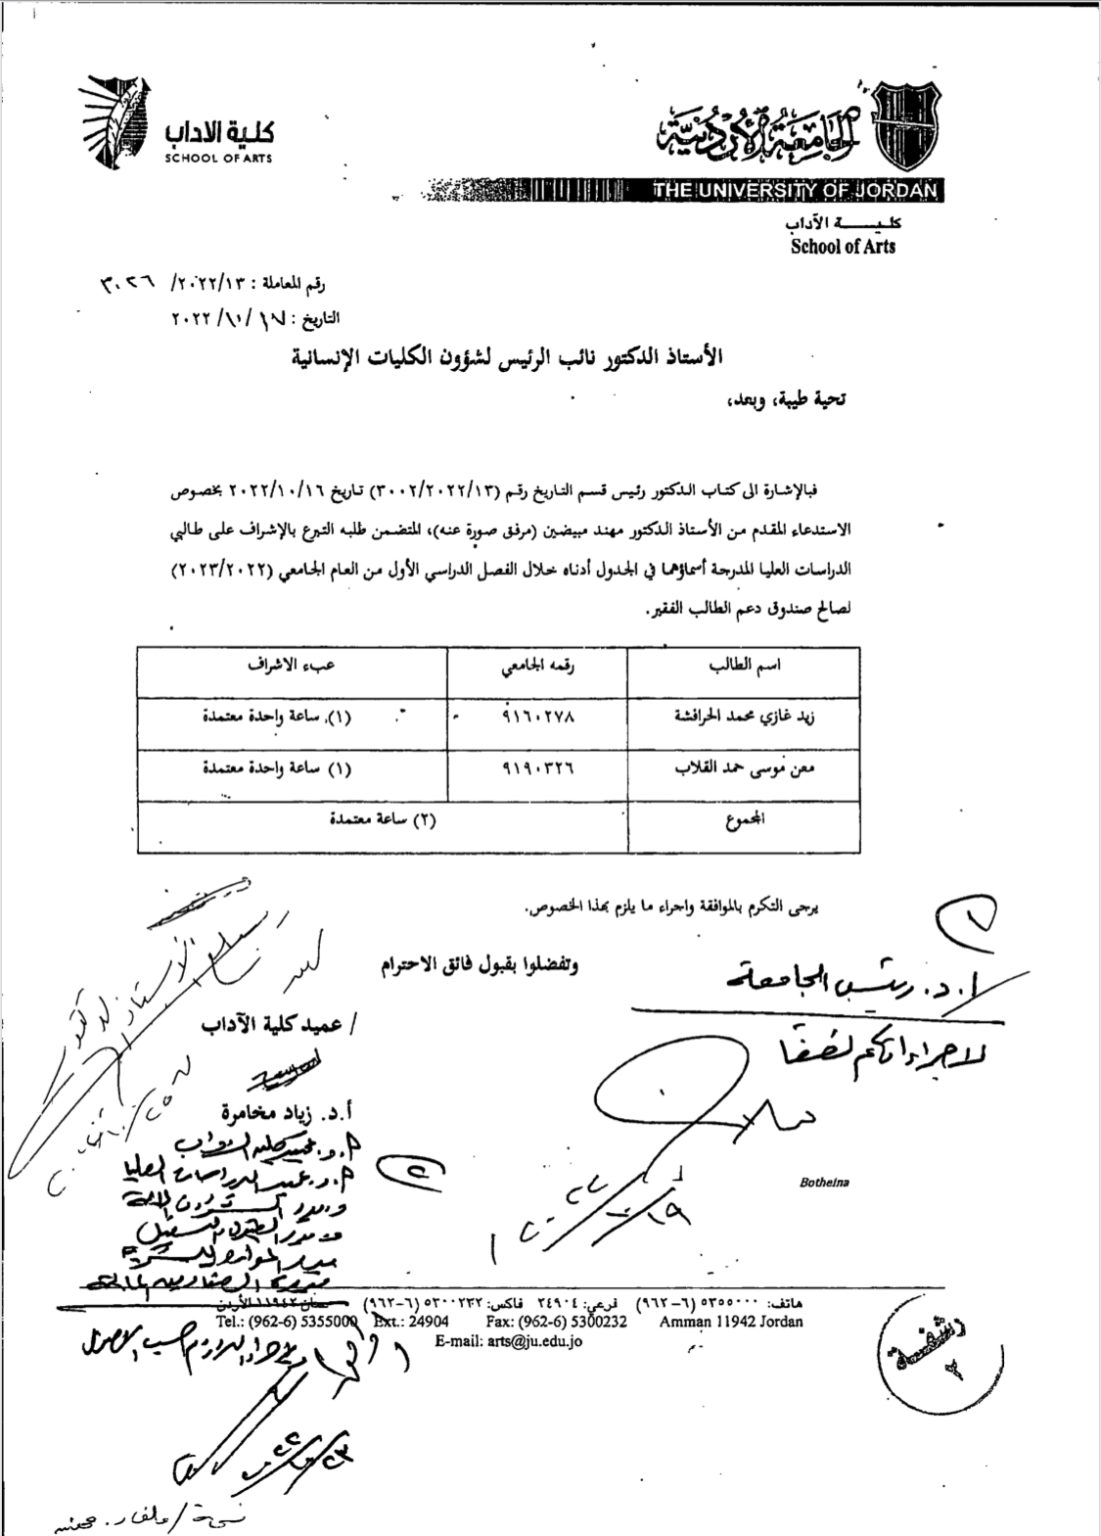 كلية الآداب
SCHOOL OF ARTS
الجامعة الأردنية
THE UNIVERSITY OF JORDAN
كليـــــة الآداب
School of Arts
رقم المعاملة : ٢٠٢٢/١٣/ ٣٠٢٦
التاريخ : ١٧/ ١٠/ ٢٠٢٢
الأستاذ الدكتور نائب الرئيس لشؤون الكليات الإنسانية
تحية طيبة، وبعد،
فبالإشارة الى كتاب الدكتور رئيس قسم التاريخ رقم (٣٠٠٢/٢٠٢٢/١٣) تاريخ ٢٠٢٢/١٠/١٦ بخصوص
الاستدعاء المقدم من الأستاذ الدكتور مهند مبيضين (مرفق صورة عنه)، المتضمن طلبه التبرع بالإشراف على طالبي
الدراسات العليا المدرجة أسماؤهما في الجدول أدناه خلال الفصل الدراسي الأول من العام الجامعي (٢٠٢٣/٢٠٢٢)
لصالح صندوق دعم الطالب الفقير.
اسم الطالب رقمه الجامعي عبء الاشراف
زيد غازي محمد الخرافشة ٩١٦٠٢٧٨ (١) ساعة واحدة معتمدة
معن موسى حمد القلاب ٩١٩٠٣٢٦ (١) ساعة واحدة معتمدة
المجموع (٢) ساعة معتمدة
يرجى التكرم بالموافقة واجراء ما يلزم بهذا الخصوص.
وتفضلوا بقبول فائق الاحترام
١
ا.د. رئيس الجامعة
لاجراءاتكم لطفا
/ عميد كلية الآداب
أ.د. زياد مخامرة
أ.د. عميد كلية الآداب
أ.د. عميد الدراسات العليا
٢
Botheina
هاتف: ٥٣٥٥٠٠٠ (٦-٩٦٢) فرعي: ٢٤٩٠٤ فاكس: ٥٣٠٠٢٣٢ (٦-٩٦٢) عمان ١١٩٤٢ الأردن
Tel.: (962-6) 5355000 Ext.: 24904 Fax: (962-6) 5300232 Amman 11942 Jordan
E-mail: arts@ju.edu.jo
حسب الأصول
٢